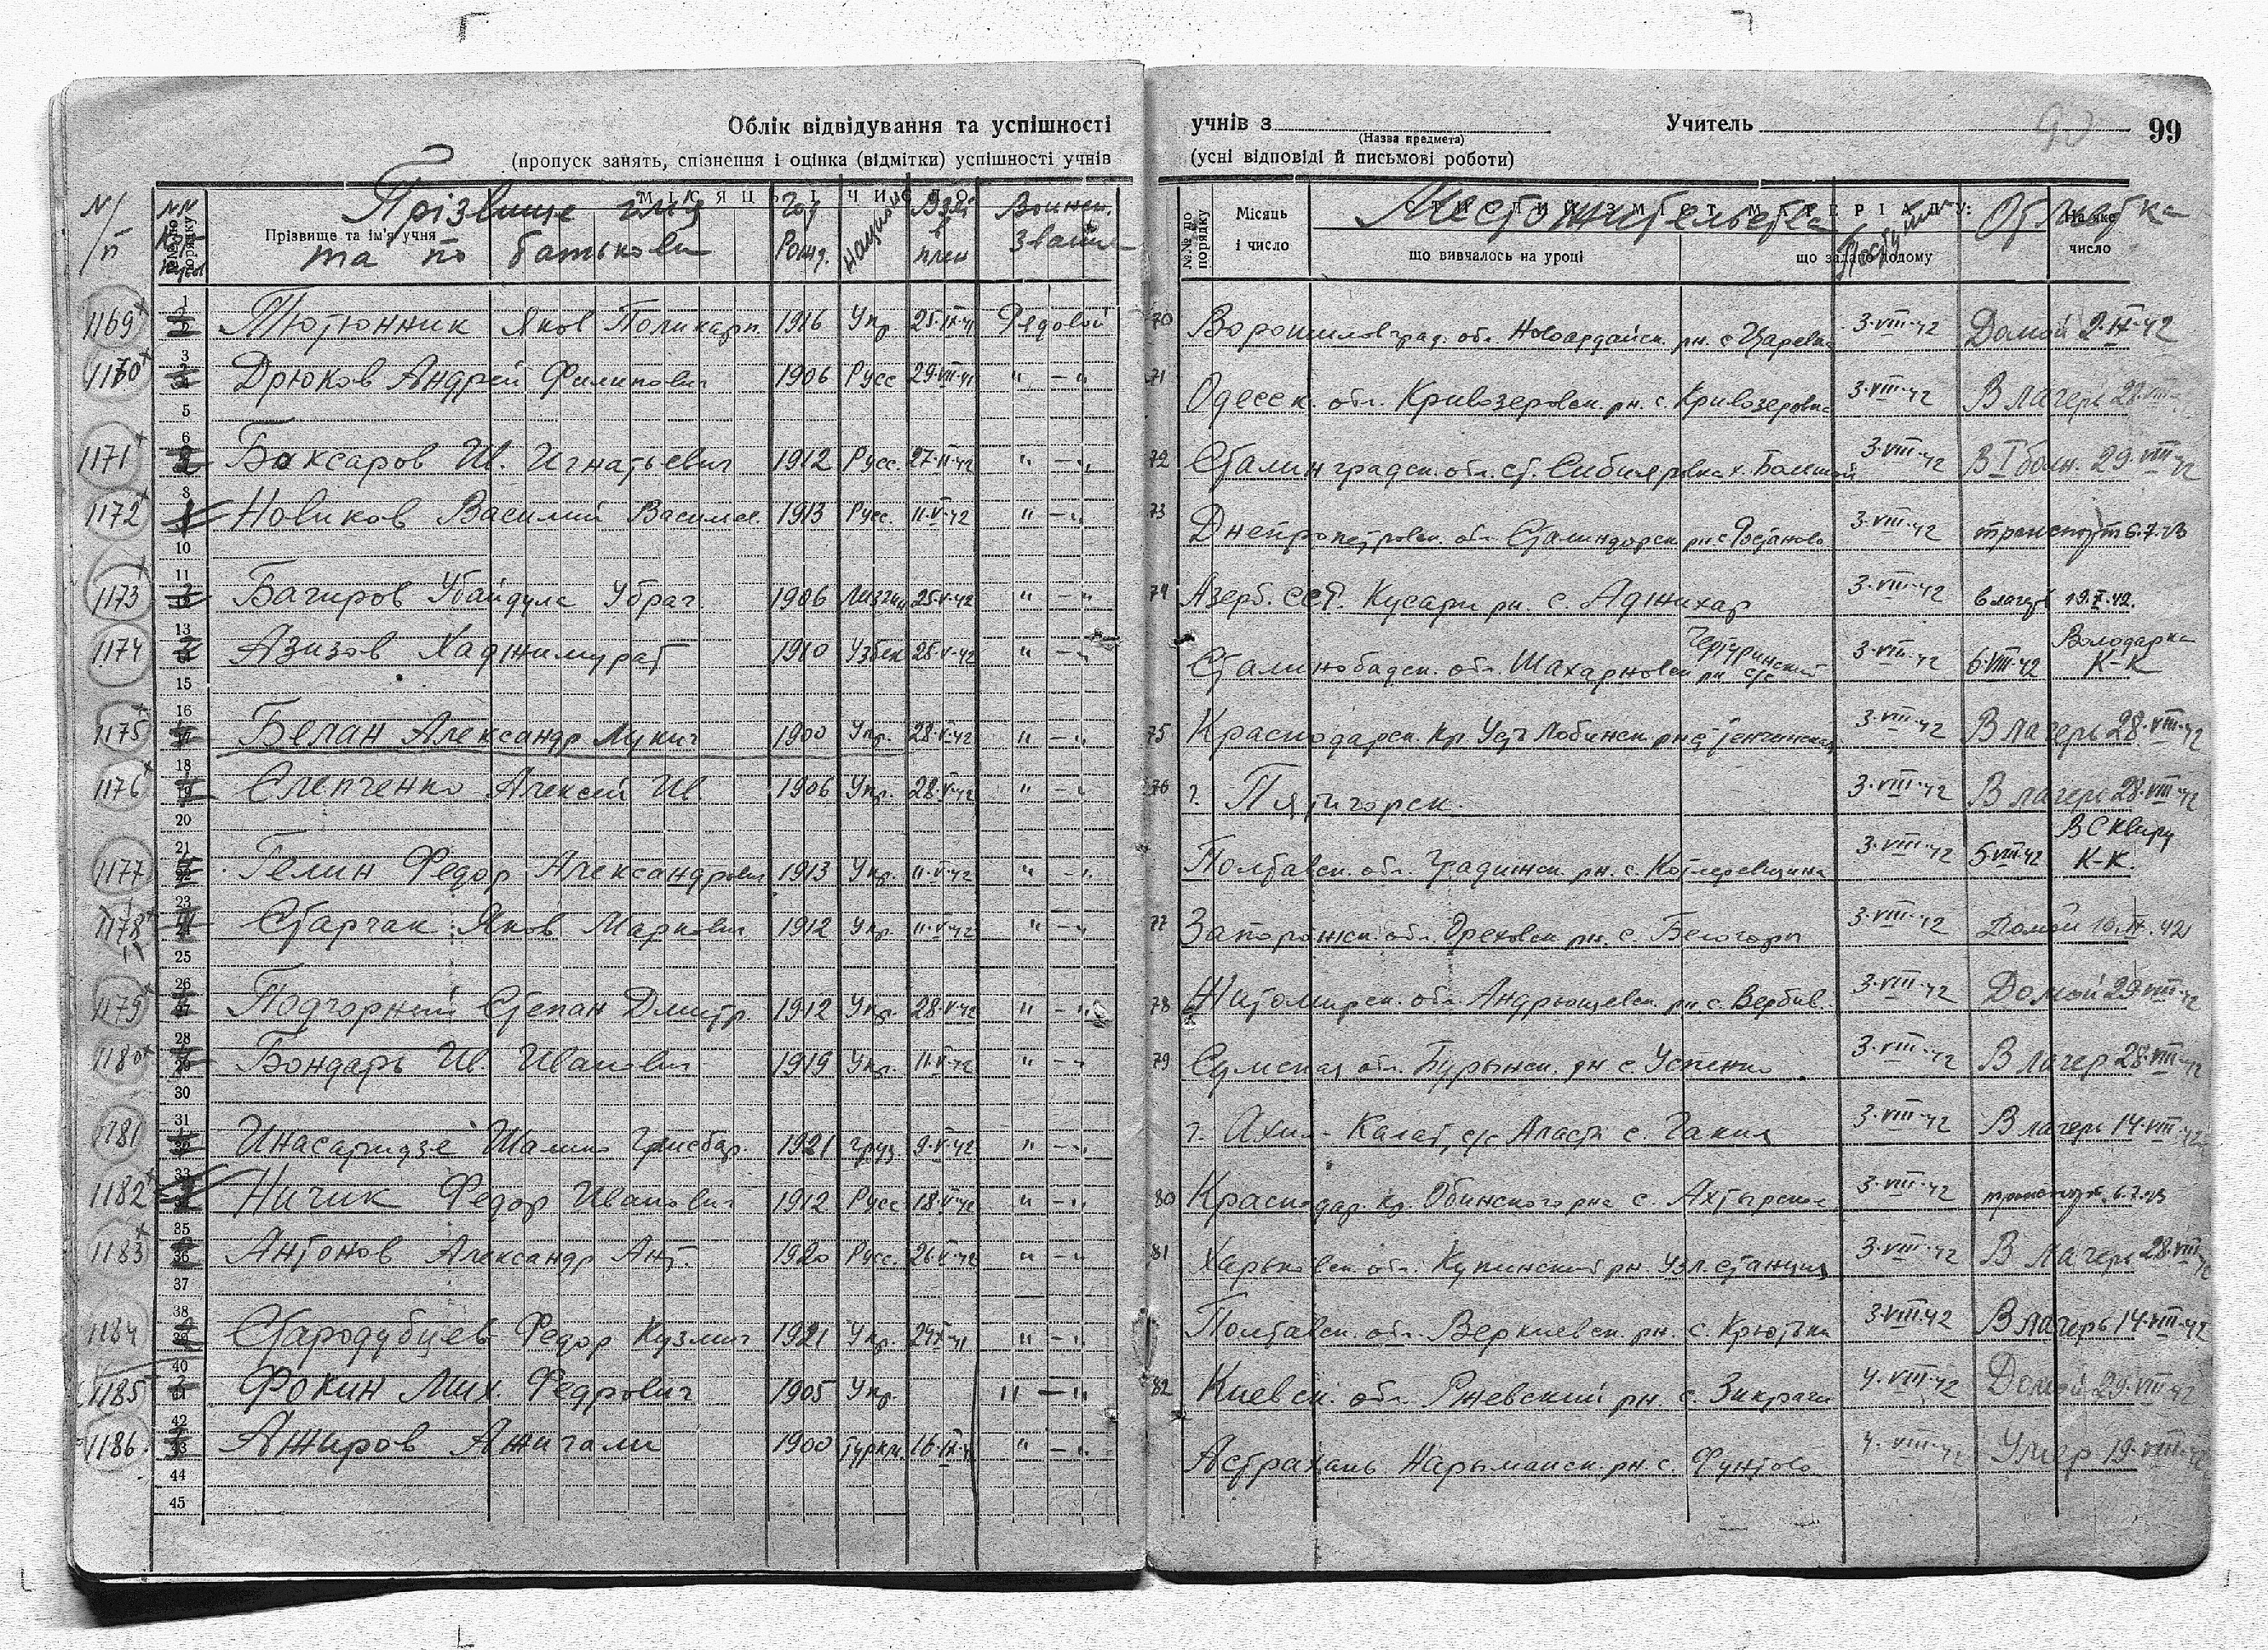 Облік відвідування та успішності
(пропуск занять, спізнення і оцінка (відмітки) успішності учнів
учнів з Учитель 99
(Назва предмета)
(усні відповіді й письмові роботи)
N/п №№ до порядку Прізвище та ім'я учня МІСЯЦЬ І ЧИСЛО
Прізвище імя та по батькови Год Рожд. Национ Взят плен Воинск. Звание
№№ до порядку Місяць і число СТИСЛИЙ ЗМІСТ МАТЕРІАЛУ: що вивчалось на уроці що задано додому На яке число
Местожительства Поступил Отметка
1169 Тютюнник Яков Поликарп. 1916 Укр. 25.IX.41 Рядовой 70 Ворошиловград. обл. Новоайдайск. рн. с Царевка 3.VIII.42 Домой 9.IX.42
1170 Дрюков Андрей Филипович 1906 Русс 29.VII.41 " - " 71 Одесск. обл. Кривозеровск. рн. с. Кривозеровка 3.VIII.42 В лагерь 28.VIII
1171 Баксаров Ив. Игнатьевич 1912 Русс. " - " 72 Сталинградск. обл. ст. 3.VIII.42 В I болн. 29.VIII.42
1172 Новиков Василий Василье. 1913 Русс. 11.V.42 " - " 73 Днепропетровск. обл. Сталиндорск рн с 3.VIII.42 транспорт 6.7.43
1173 Багиров Убайдула Убраг. 1906 Лизгин 25.V.42 " - " 74 Азерб. ССР. Кусари рн. с Аджихар 3.VIII.42 в лагерь 19.X.42.
1174 Азизов Хаджимурат 1910 Узбек 28.V.42 " - " Сталинобадск. обл. Шахарновск рн с/с 3.VIII.42 6.VIII.42 Володарка К-К
1175 Белан Александр Лукич 1900 Укр. 28.V.42 " - " 75 Краснодарск. кр Усть Лабинск. рн 3.VIII.42 В лагерь 28.VIII.42
1176 Слепченко Алексей Ив 1906 Укр. 28.V.42 " - " 76 г. Пятигорск. 3.VIII.42 В лагерь 28.VIII.42
1177 Гелин Федор Александрович 1913 Укр. 11.V.42 " - " Полтавск. обл. Градижск. рн. с. Котляревщина 3.VIII.42 5.VIII.42 В Сквиру К-К.
1178 Старчак Яков Маркович 1912 Укр. 11.V.42 " - " 77 Запорожск. обл. Ореховск рн. с. Белогоры 3.VIII.42 Домой 10.IX.42
1179 Подгорный Степан Дмитр. 1912 Укр. 28.V.42 " - " 78 Житомирск. обл. Андрюшевск. рн. с. Вербив. 3.VIII.42 Домой 29.VIII.42
1180 Бондарь Ив. Иванович 1919 Укр. 11.V.42 " - " 79 Сумская обл. Бурынск. рн с. Успенка 3.VIII.42 В лагер 28.VIII.42
1181 Инасаридзе Шалико 1921 груз. 9.V.42 " - " г. Ахил-Калат, с/с Аласта с. Гакиа 3.VIII.42 В лагерь 14.VIII.42
1182 Ничик Федор Иванович 1912 Русс. 18.V.42 " - " 80 Краснодар. кр. Обинского рна с. Ахтырское 3.VIII.42 транспорт 6.7.43
1183 Антонов Александр Ант. 1920 Русс. 26.V.42 " - " 81 Харьковск. обл. Купинский рн. Узл. станция 3.VIII.42 В лагерь 28.VIII.42
1184 Стародубцев Федор Кузмич 1921 Укр. " - " Полтавск. обл. рн. с. 3.VIII.42 В лагерь 14.VIII.42
1185 Фокин Мих. Федрович 1905 Укр. " - " 82 Киевск. обл. Ржевский рн. с. Зикрачи 4.VIII.42 Домой 29.VIII.42
1186. Ажиров Ажигали 1900 туркм. " - " Астрахань Нарыманск. рн. с. Фунтово 4.VIII.42 Умер 19.VIII.42